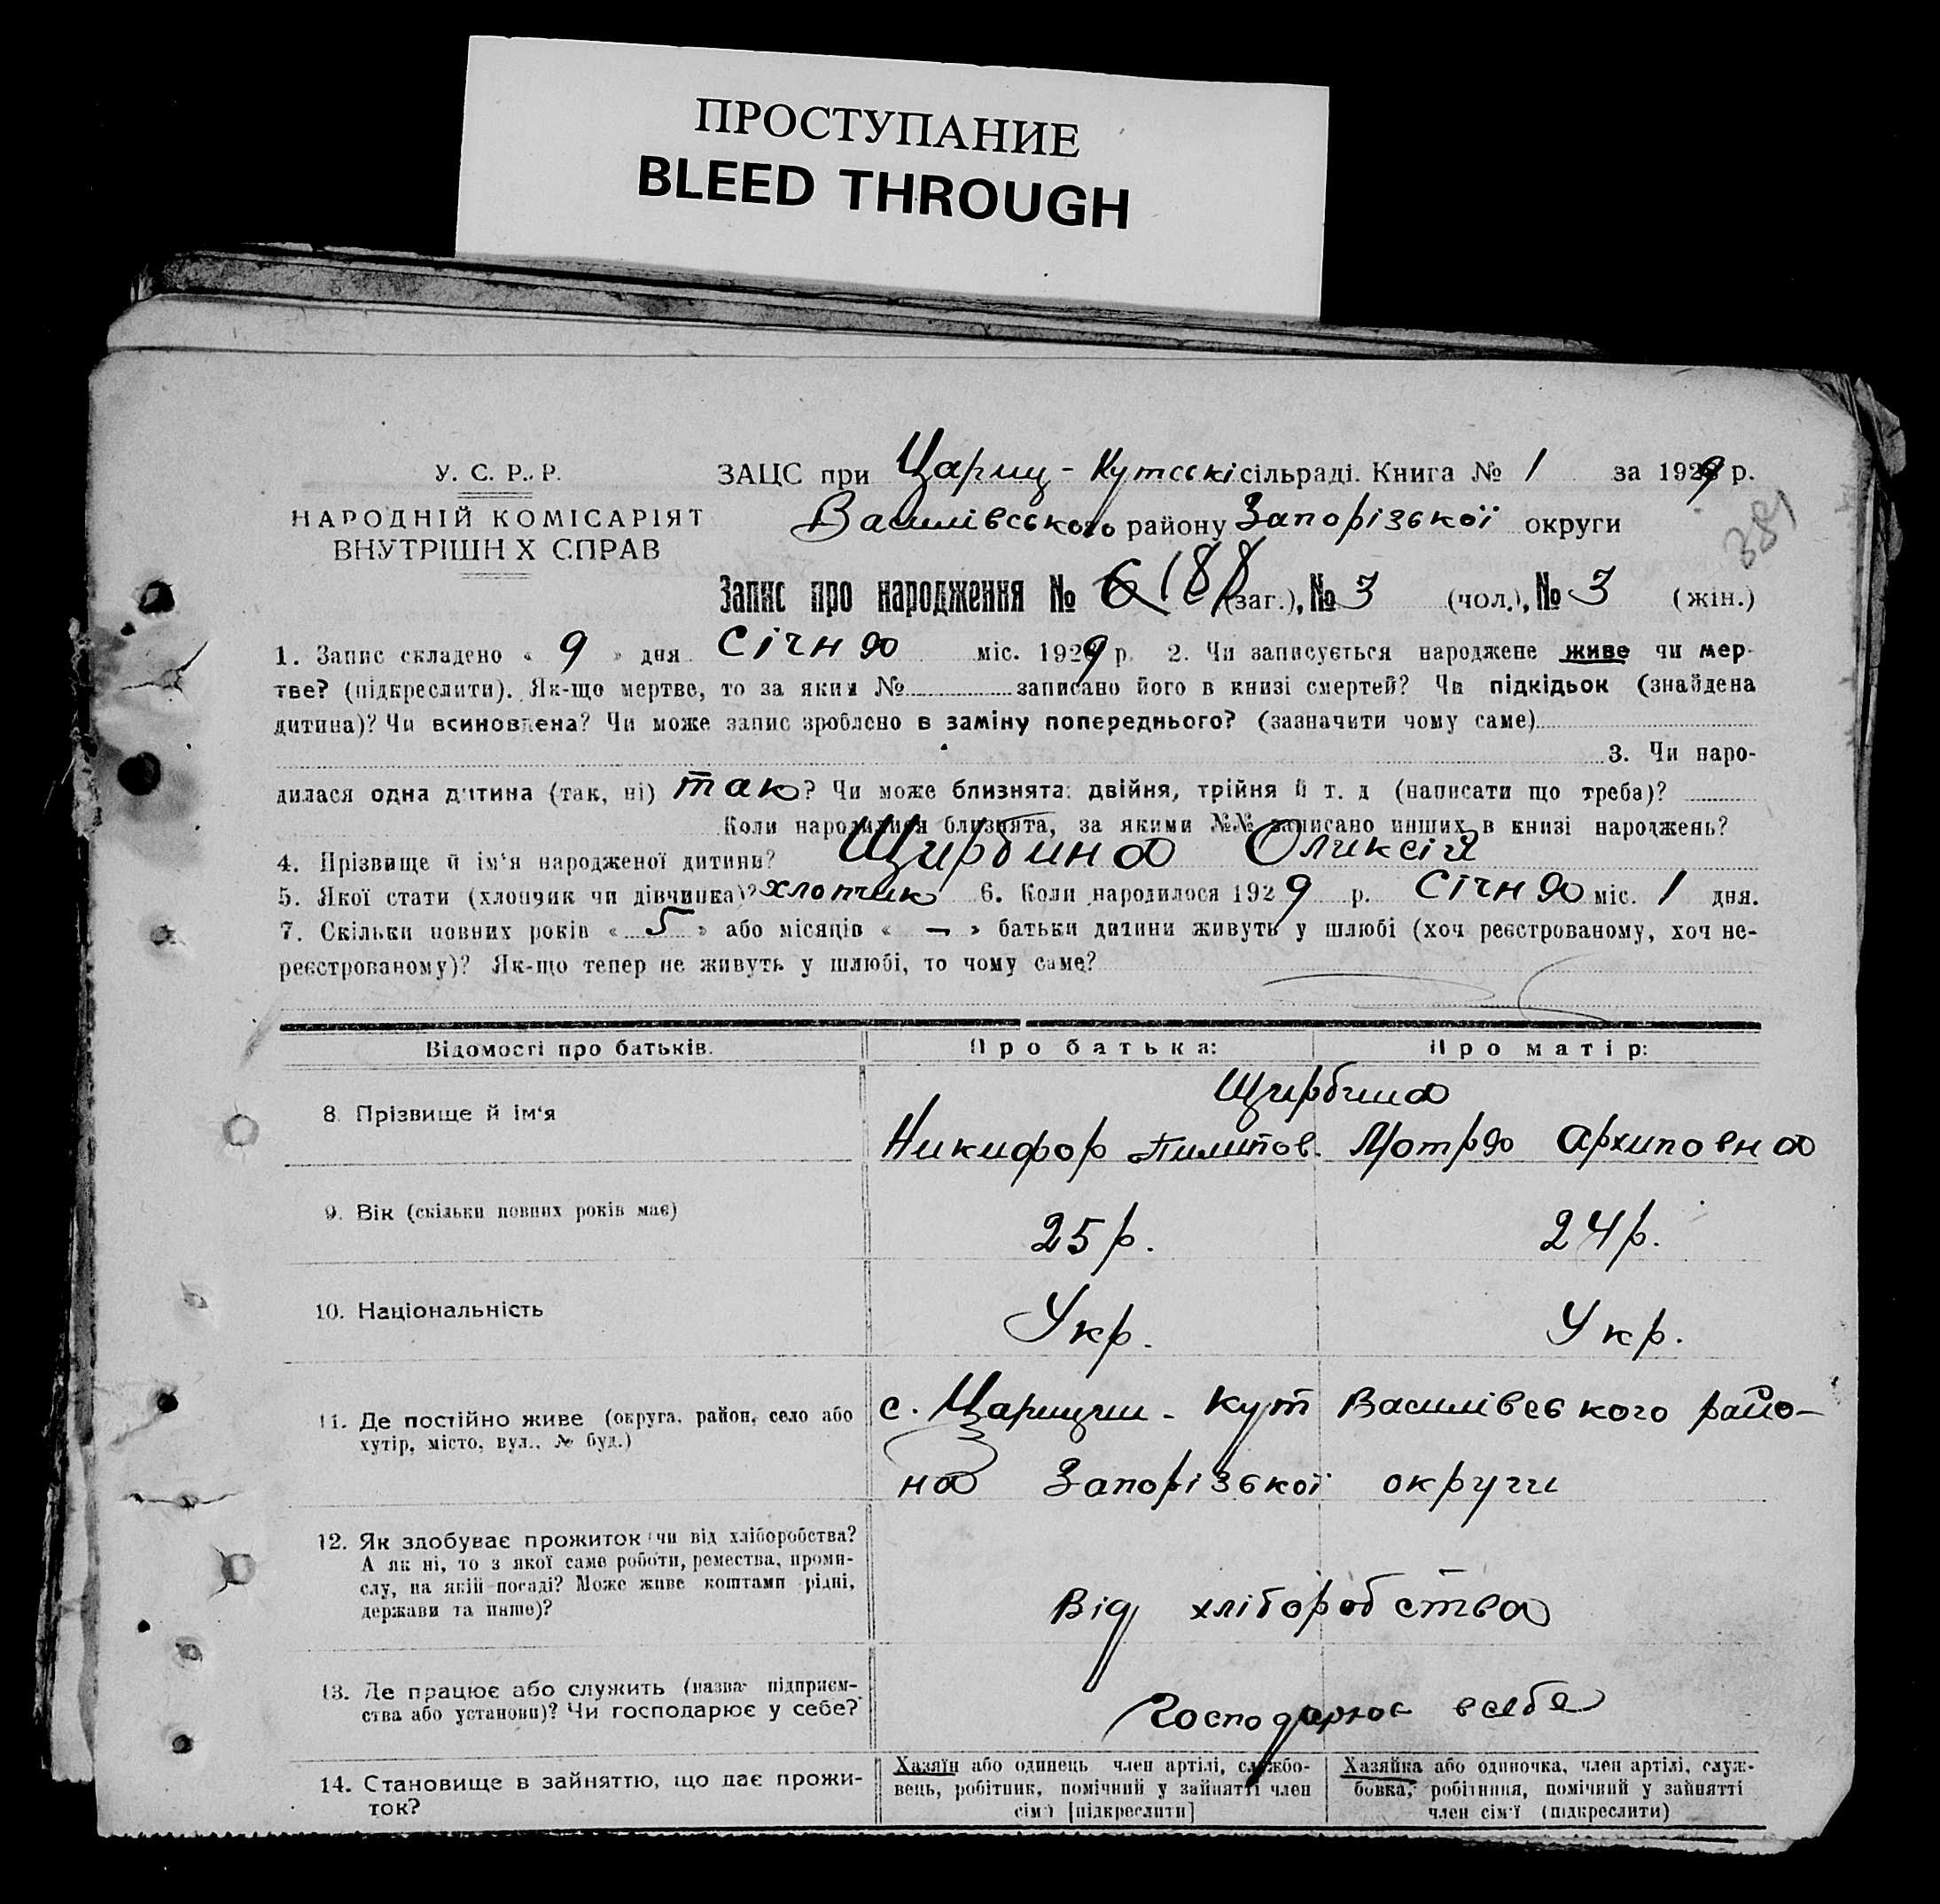 ПРОСТУПАНИЕ
BLEED THROUGH
У. С. Р. Р.
НАРОДНІЙ КОМІСАРІЯТ
ВНУТРІШН Х СПРАВ
ЗАЦС при Цариц - Кутській сільраді. Книга № 1 за 1929 р.
Василівського району Запорізької округи
381
Запис про народження № 188 (заг.), № 3 (чол.), № 3 (жін.)
1. Запис складено « 9 » дня Січня міс. 1929 р. 2. Чи записується народжене живе чи мер-
тве? (підкреслити). Як-що мертве, то за яким № записано його в книзі смертей? Чи підкідьок (знайдена
дитина)? Чи всиновлена? Чи може запис зроблено в заміну попереднього? (зазначити чому саме)
3. Чи наро-
дилася одна дитина (так, ні) так? Чи може близнята: двійня, трійня й т. д (написати що треба)?
Коли народилися близнята, за якими №№ записано инших в книзі народжень?
4. Прізвище й ім'я народженої дитини? Щирбина Оликсій
5. Якої стати (хлопчик чи дівчинка)? хлопчик 6. Коли народилося 1929 р. Січня міс. 1 дня.
7. Скільки повних років « 5 » або місяців « — » батьки дитини живуть у шлюбі (хоч реєстрованому, хоч не-
реєстрованому)? Як-що тепер не живуть у шлюбі, то чому саме?
Відомості про батьків. Про батька: Про матір:
Щирбина
8. Прізвище й ім'я Никифор Пилипов. Мотря Архиповна
9. Вік (скільки повних років має) 25 р. 24 р.
10. Національність Укр. Укр.
11. Де постійно живе (округа, район, село або
хутір, місто, вул., № буд.)
с. Царицин - Кут Василівського райо-
на Запорізької округи
12. Як здобуває прожиток (чи від хліборобства?
А як ні, то з якої саме роботи, ремества, проми-
слу, на якій посаді? Може живе коштами рідні,
держави та инше)?
Від хліборобства
13. Де працює або служить (назва підприєм-
ства або установи)? Чи господарює у себе?
Господарює в себе
14. Становище в зайняттю, що дає прожи-
ток?
Хазяїн або одинець член артілі, службо-
вець, робітник, помічний у зайнятті член
сім'ї [підкреслити]
Хазяйка або одиночка, член артілі, служ-
бовка, робітниця, помічний у зайнятті
член сім'ї (підкреслити)